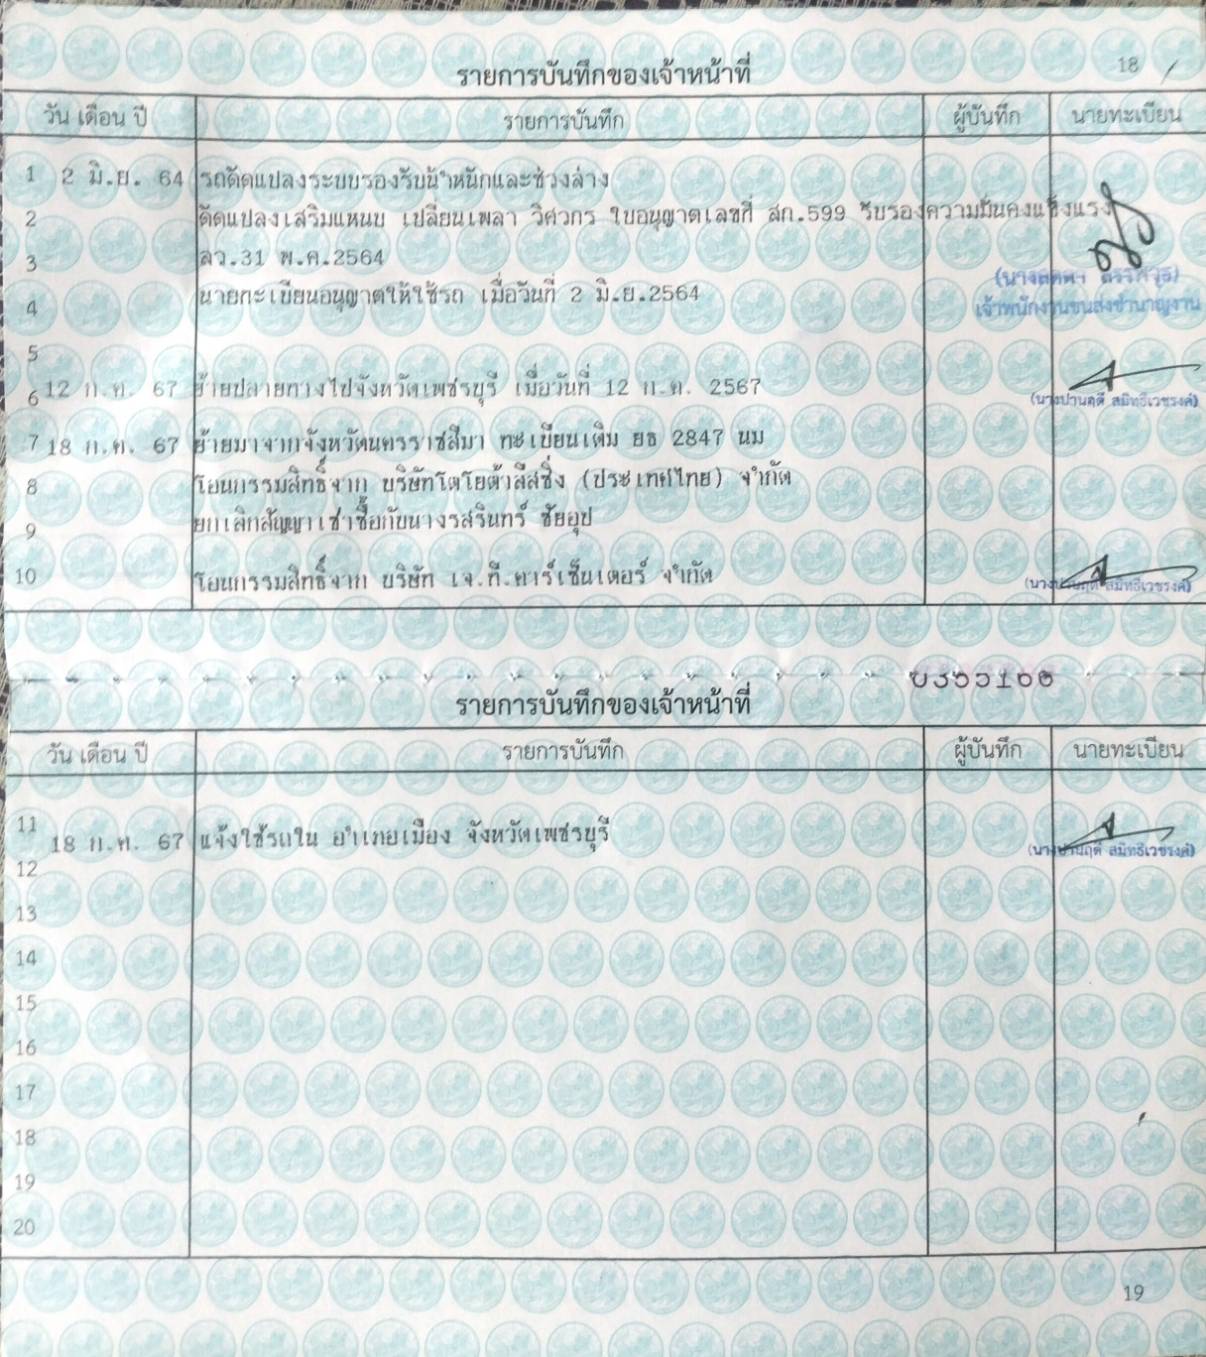 รายการบันทึกของเจ้าหน้าที่ 18
วัน เดือน ปี รายการบันทึก ผู้บันทึก นายทะเบียน
1 2 มิ.ย. 64 รถดัดแปลงระบบรองรับน้ำหนักและช่วงล่าง
2 ดัดแปลงเสริมแหนบ เปลี่ยนเพลา วิศวกร ใบอนุญาตเลขที่ สก.599 รับรองความมั่นคงแข็งแรง
3 ลว.31 พ.ค.2564
(นาง
4 นายทะเบียนอนุญาตให้ใช้รถ เมื่อวันที่ 2 มิ.ย.2564
เจ้าพนักงานขนส่งชำนาญงาน
5
6 12 ก.ค. 67 ย้ายปลายทางไปจังหวัดเพชรบุรี เมื่อวันที่ 12 ก.ค. 2567
(นางปานฤดี สมิทธิเวชรงค์)
7 18 ก.ค. 67 ย้ายมาจากจังหวัดนครราชสีมา ทะเบียนเดิม ยธ 2847 นม
8 โอนกรรมสิทธิ์จาก บริษัทโตโยต้าลีสซิ่ง (ประเทศไทย) จำกัด
9 ยกเลิกสัญญาเช่าซื้อกับนางรสรินทร์ ชัยอุป
10 โอนกรรมสิทธิ์จาก บริษัท เจ.ที.คาร์เซ็นเตอร์ จำกัด
(นางปานฤดี สมิทธิเวชรงค์)
รายการบันทึกของเจ้าหน้าที่
วัน เดือน ปี รายการบันทึก ผู้บันทึก นายทะเบียน
11 18 ก.ค. 67 แจ้งใช้รถใน อำเภอเมือง จังหวัดเพชรบุรี
(นางปานฤดี สมิทธิเวชรงค์)
12
13
14
15
16
17
18
19
20
19